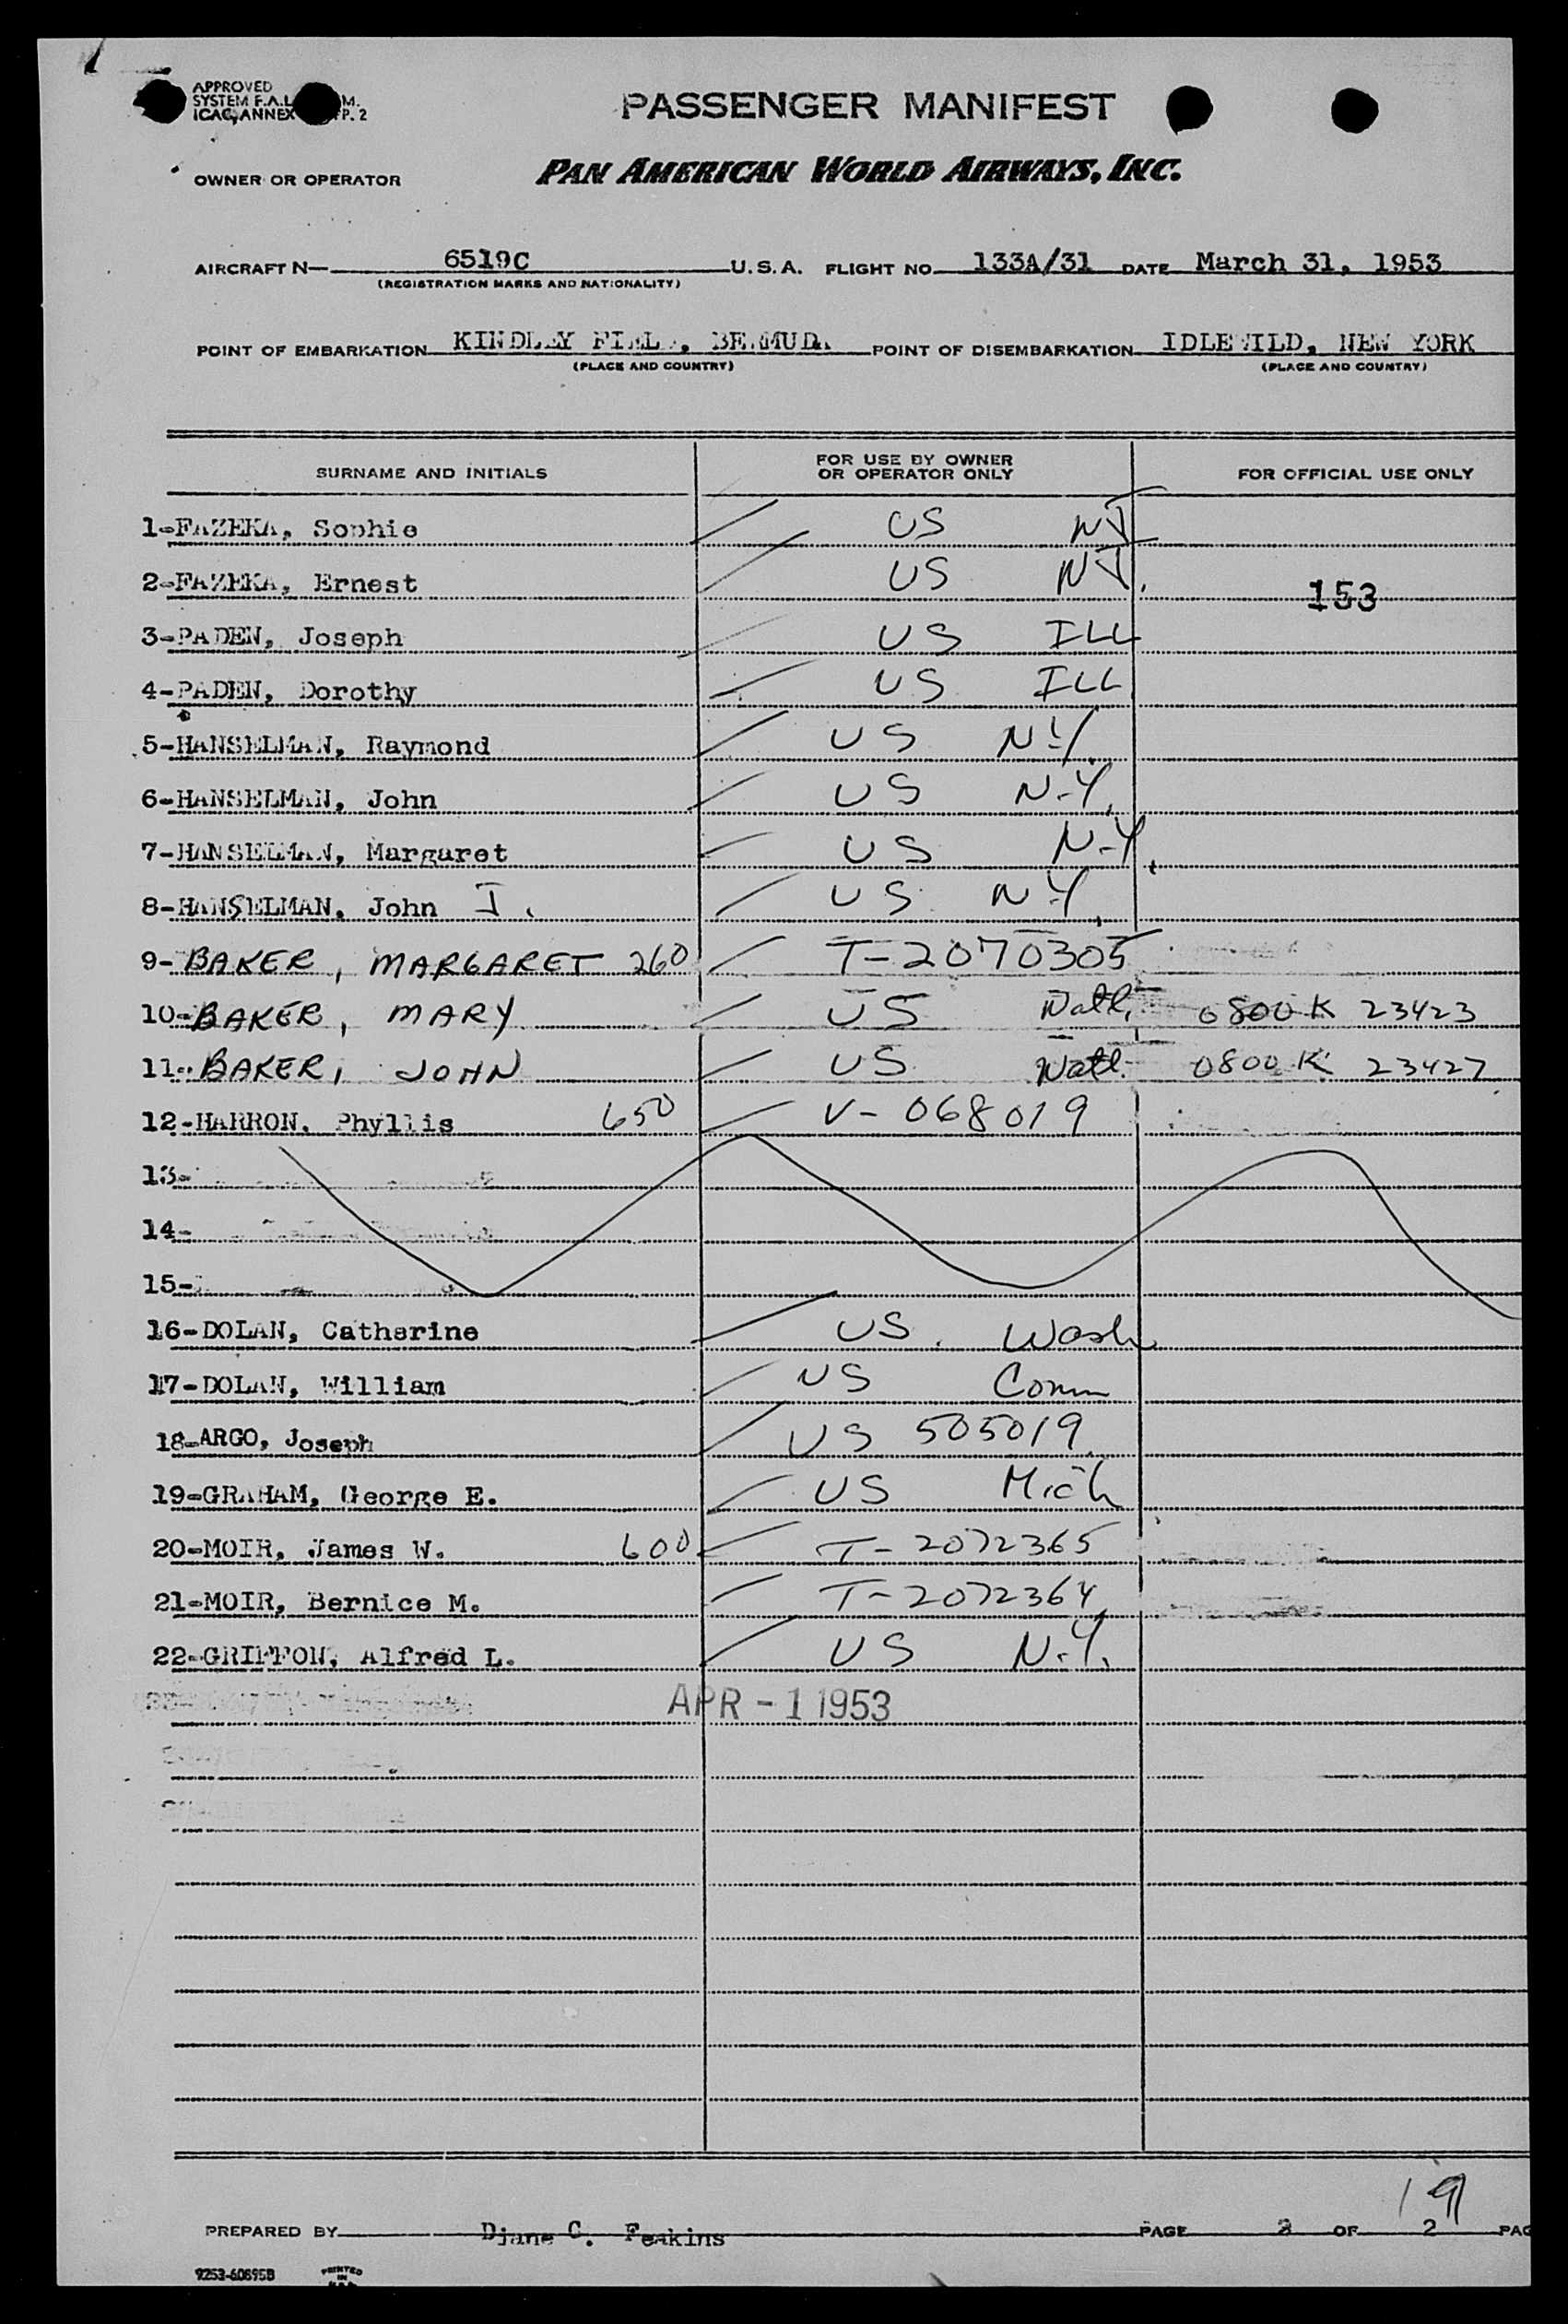 APPROVED
SYSTEM F.A.L. M.
ICAO, ANNEX P. 2
PASSENGER MANIFEST
OWNER OR OPERATOR PAN AMERICAN WORLD AIRWAYS, INC.
AIRCRAFT N— 6519C U.S.A. FLIGHT NO. 133A/31 DATE March 31, 1953
(REGISTRATION MARKS AND NATIONALITY)
POINT OF EMBARKATION KINDLEY FIELD, BERMUDA POINT OF DISEMBARKATION IDLEWILD, NEW YORK
(PLACE AND COUNTRY) (PLACE AND COUNTRY)
SURNAME AND INITIALS FOR USE BY OWNER OR OPERATOR ONLY FOR OFFICIAL USE ONLY
1-FAZEKA, Sophie US NJ
2-FAZEKA, Ernest US NJ. 153
3-PADEN, Joseph US ILL
4-PADEN, Dorothy US ILL
5-HANSELMAN, Raymond US N.Y.
6-HANSELMAN, John US N.Y.
7-HANSELMAN, Margaret US N.Y.
8-HANSELMAN, John J. US N.Y.
9-BAKER, MARGARET 260 T-2070305
10-BAKER, MARY US Natl. 0800 K 23423
11-BAKER, JOHN US Natl. 0800 K 23427
12-HARRON, Phyllis 650 V-068019
13-
14-
15-
16-DOLAN, Catherine US. Wash
17-DOLAN, William US Conn
18-ARGO, Joseph US 505019
19-GRAHAM, George E. US Mich
20-MOIR, James W. 600 T-2072365
21-MOIR, Bernice M. T-2072364
22-GRIFFON, Alfred L. US N.Y.
APR - 1 1953
19
PREPARED BY Diane C. Feakins PAGE 2 OF 2 PAG
9253-60895B PRINTED IN